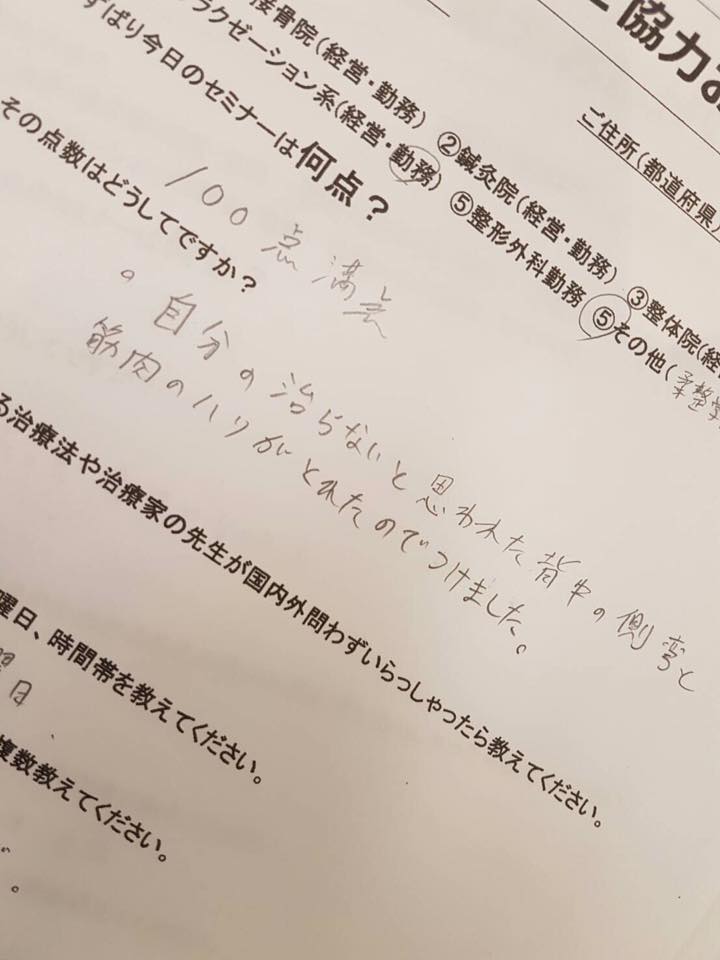 協力お
ご住所(都道府県)
接骨院(経営・勤務) ②鍼灸院(経営・勤務) ③整体院(経
ラクゼーション系(経営・勤務) ⑤整形外科勤務 ⑤その他(柔整
ずばり今日のセミナーは何点?
100点満点
その点数はどうしてですか?
。自分の治らないと思われた背中の側弯と
筋肉のハリがとれたのでつけました。
る治療法や治療家の先生が国内外問わずいらっしゃったら教えてください。
曜日、時間帯を教えてください。
曜日
複数教えてください。